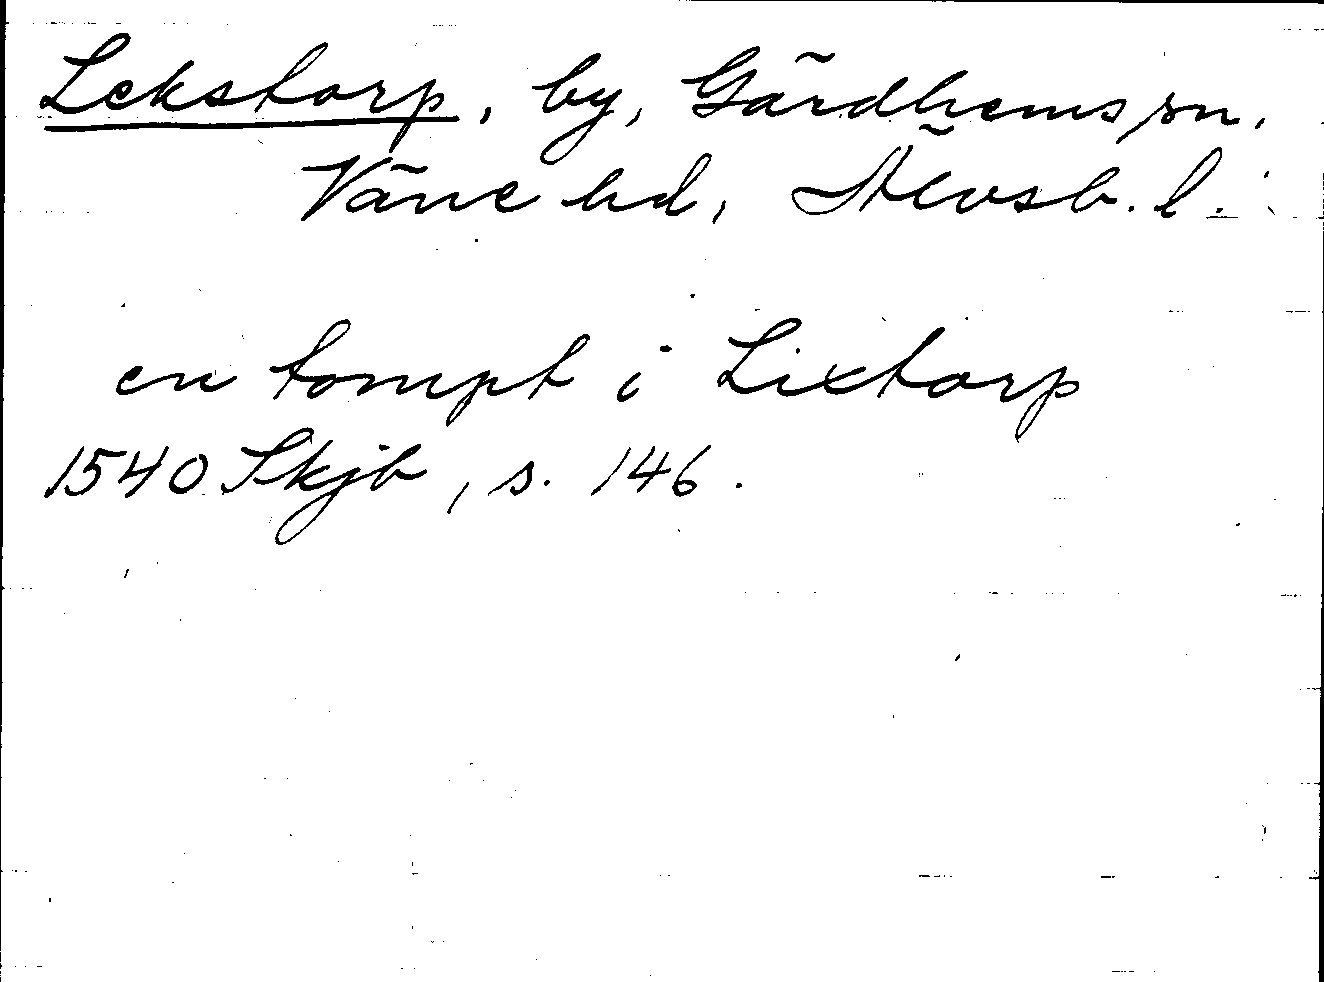 Lekstorp, by, Gärdhems sn,
Väne hd, Älvsb. l.
en tompt i Lixtorp
1540 Skjb, s. 146.